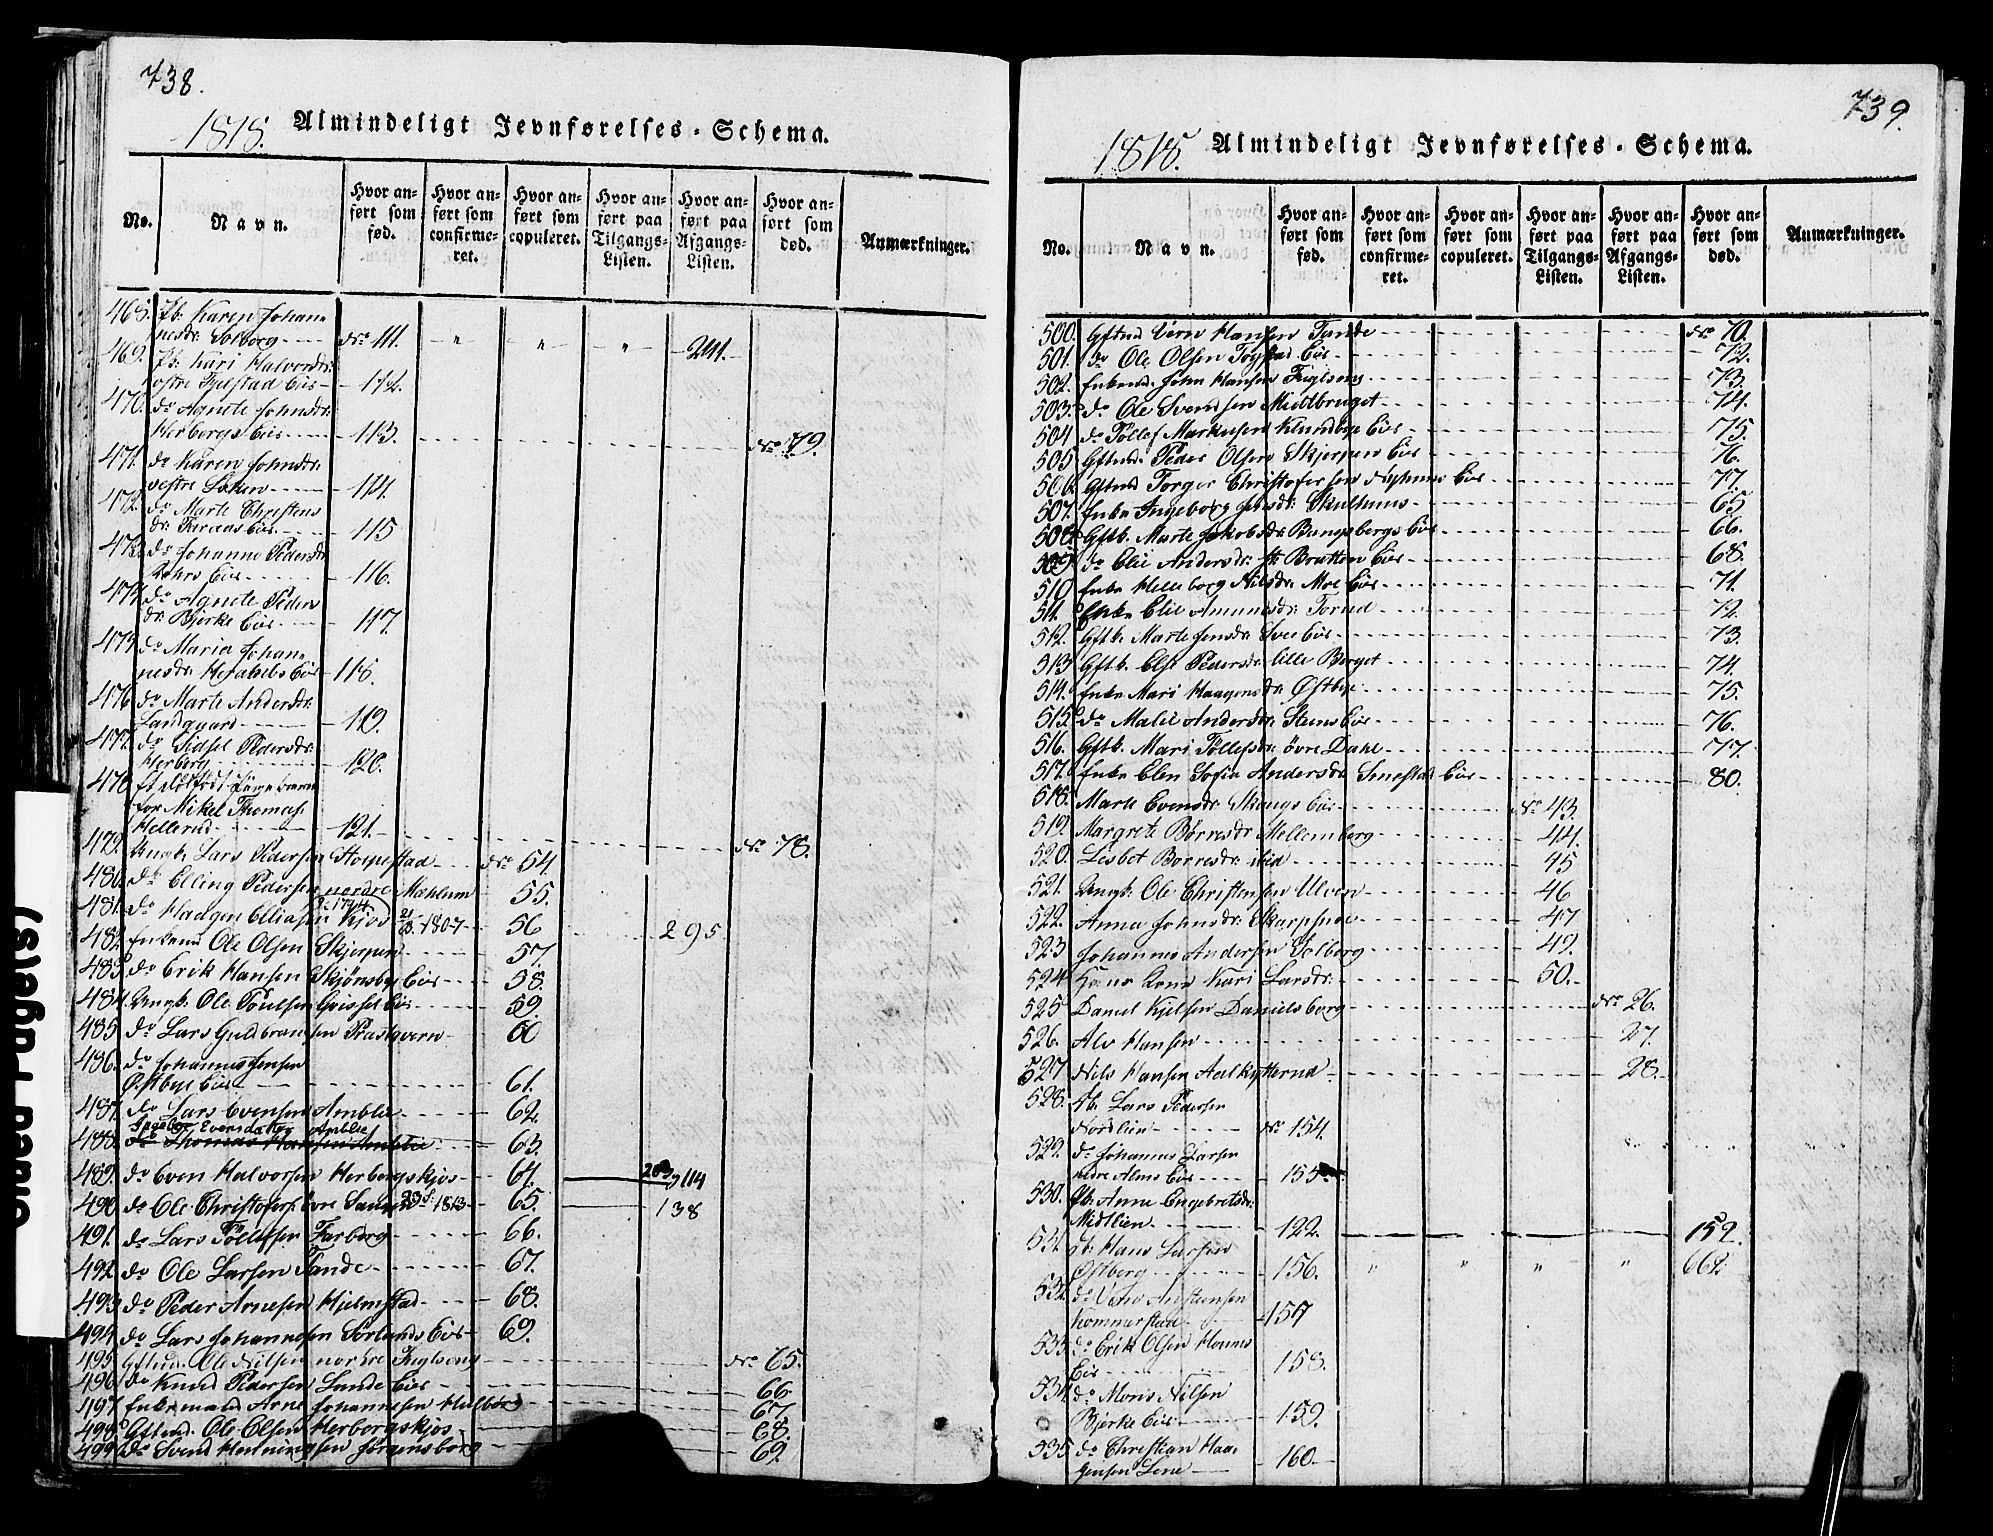 738.
1818. Almindeligt Jevnførelses-Schema.
No. Navn. Hvor anført som fød. Hvor anført som confirmeret. Hvor anført som copuleret. Hvor anført paa Tilgangs-Listen. Hvor anført paa Afgangs-Listen. Hvor anført som død. Anmærkninger.
468. Pb. Karen Johan-
nesdr. Solberg No. 111. " " " 241.
469. Pb. Kari Halvorsdr.
østre Eie 112.
470. do Agnete Johnsdr.
Herbergs Eie 113. No. 79.
471. do Karen Johnsdr.
vestre 114.
472. do Marte Christens
dr. Eie 115
473. do Johanne Pedersdr.
Eie 116.
474. do Agnete Peders
dr. Bjerke Eie 117.
475. do Maria Johan-
nesdr. Eie 118.
476. do Marte Andersdr.
119.
477. do Sidsel Pedersdr.
Herberg 120.
478. Et dødfødt
for Mikel Thomass.
Hellerud 121. No. 78.
479. Ungk. Lars Pedersen No. 54.
480. do Elling Pedersen nordre Mæhlum 55.
481. do Haagen Eliasen Kjos 1807 56 295
482. Enkemd Ole Olsen Skjerpen 57.
483. do Erik Hansen Skjønsby Eie 58.
484. Ungk. Ole Poulsen Eie 59.
485. do Lars Guldbrandsen Prastqvern 60
486. do Johannes Jensen
Østbye Eie 61.
487. do Lars Evensen Amblie 62.
Ingebor Evensdatter Amblie
488. do Thomas Hansen Amblie 63.
489. do Even Halvorsen Herbergskjos 64. 114
490. do Ole Christofers. øvre 1813 65. 138
491. do Lars Tøllefsen Farberg 66.
492. do Ole Larsen Tande 67.
493. do Peder Arnesen Hjelmstad 68.
494. do Lars Johannesen Sørlunds Eie 69.
495. Giftmd. Ole Nilsen nordre Fuglseng No. 65.
496. do Knud Pedersen Lunde Eie 66.
497. Enkemand Arne Johannesen 67.
498. Giftmd. Ole Olsen Herbergskjos 68.
499. do Svend Henningsen Jørgensborg 69.
739.
1818. Almindeligt Jevnførelses-Schema.
No. Navn. Hvor anført som fød. Hvor anført som confirmeret. Hvor anført som copuleret. Hvor anført paa Tilgangs-Listen. Hvor anført paa Afgangs-Listen. Hvor anført som død. Anmærkninger.
500. Giftmd Hansen Tande No. 70.
501. do Ole Olsen Eie 72.
502. Enkemd. John Hansen Fuglseng 73.
503. do Ole Svendsen Midtbruget 74.
504 do Tøllef Markusen Klundbye Eie 75.
505 Giftmd. Peder Olsen Skjerpen Eie 76.
506. Giftmd Torger Christofersen Nyhuus Eie 77.
507. Enke Ingeborg Skulhuus 65
508. Giftk. Marte Jakobsdr. Bangsbergs Eie 66.
509 do Elie Andersdr. st. Bratten Eie 68.
510 Enke Helleborg Nilsdr. Moe Eie 71.
511. Enke Elie Amunsdr. Torud 72.
512. Giftk. Marte Jensdr. Svee Eie 73.
513 Giftk. Else Pedersdr. lille Berget 74.
514. Enke Mari Haagensdr. Østbye 75.
515. do Malie Andersdr. Steens Eie 76.
516. Giftk. Mari Tøllefsdr. øvre Dahl 77.
517. Enke Elen Sofia Andersdr. Smestad Eie 80.
518. Marte Evensdr. Skougs Eie No. 43.
519. Margrete Børresdr. Mellemberg 44.
520. Lisbet Børresdr. ibid 45
521. Ungk. Ole Christensen Ulven 46
522. Anne Johnsdr. Skarpsnoe 47
523 Johannes Andersen Solberg 49.
524 Hans Kone Kari Larsdr. 50.
525 Daniel Kjelsen Danielsborg No. 26.
526. Alv Hansen 27.
527 Nils Hansen 28.
528. Pb. Lars Pedersen
Nordlien No. 154.
529. do Johannes Larsen
nedre Alms Eie 155
530. Pb. Anne Engebretsdr.
Midtlien 122. 152.
531. Pb. Hans Larsen
Østberg 156. " " " " 662.
532. do Anstensen
Kommerstad 157
533. do Erik Olsen
Eie 158.
534. do Mons Nilsen
Bjerke Eie 159.
535. do Christian Haa-
gensen Lene 160.